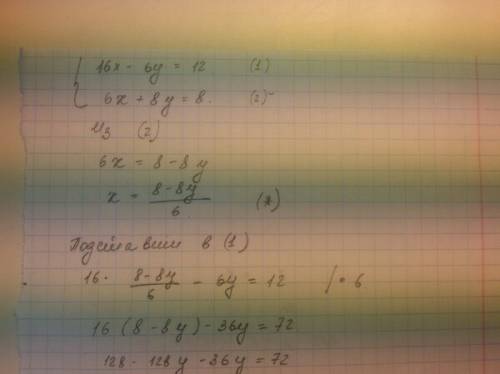 16x - 6y = 12 (1)
6x + 8y = 8. (2)
Из (2)
6x = 8 - 8y
x = \frac{8 - 8y}{6} (*)
Подставим в (1)
16 · \frac{8 - 8y}{6} - 6y = 12 / · 6
16 (8 - 8y) - 36y = 72
128 - 128y - 36y = 72